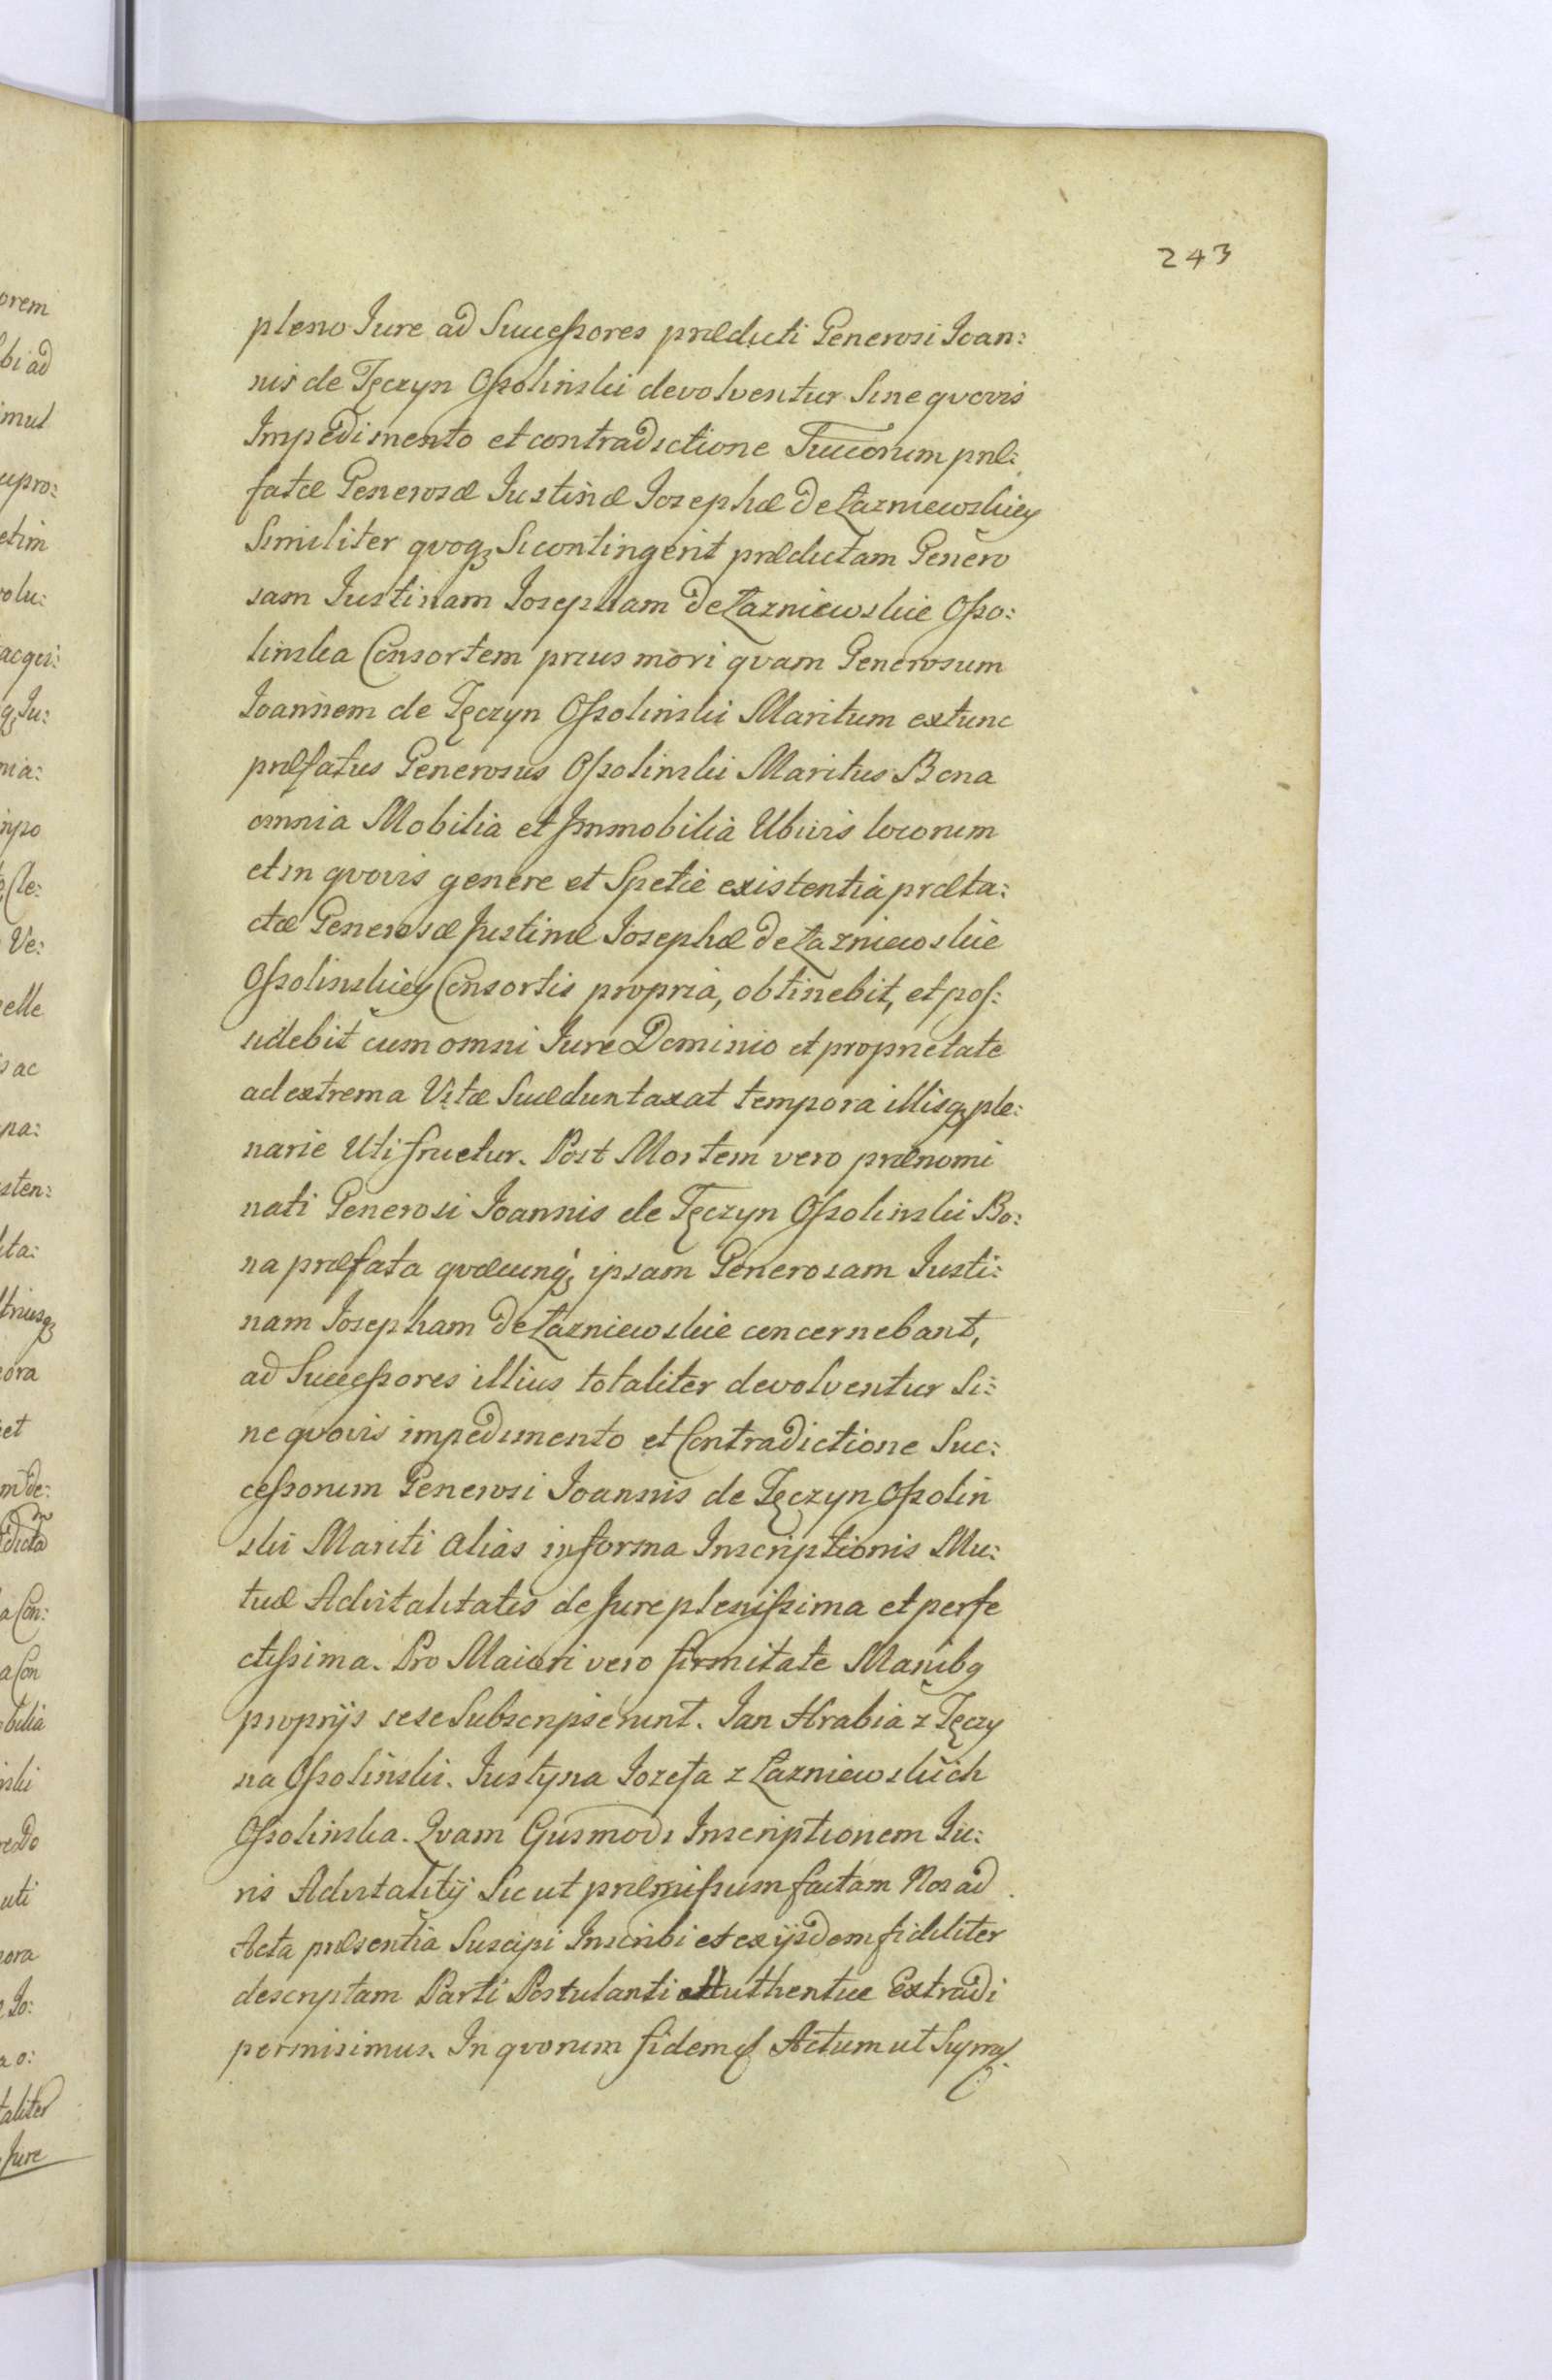 243
pleno Jure ad Successores prædicti Generosi Joan:
nis de Tęczyn Ossolinski devolventur Sine qvovis
Impedimento et contradictione Succorum præ:
fatæ Generosæ Justinæ Josephæ de Łazniewskiey
Similiter qvoqȝ Si contingerit prædictam Genero
sam Justinam Josepham de Łazniewskie Osso:
linska Consortem prius mori qvam Generosum
Joannem de Tęczyn Ossolinski Maritum extunc
præfatus Generosus Ossolinski Maritus Bona
omnia Mobilia et Immobilia Ubivis locorum
et in qvovis genere et Spetie existentia præta:
ctæ Generosæ Justinæ Josephæ de Łazniewskie
Ossolinskiey Consortis propria, obtinebit, et pos:
sidebit cum omni Jure Dominio et proprietate
ad extrema Vitæ Suæ duntaxat tempora illisqȝ ple:
narie Uti fruetur. Post Mortem vero prænomi
nati Generosi Joannis de Tęczyn Ossolinski Bo:
na præfata qvæcunqȝ ipsam Generosam Justi:
nam Josepham de Łazniewskie concernebant,
ad Successores illius totaliter devolventur Si:
ne qvovis impedimento et Contradictione Suc:
cessorum Generosi Joannis de Tęczyn Ossolin
ski Mariti alias in forma Inscriptionis Mu:
tuæ Advitalitatis de Jure plenissima et perfe
ctissima. Pro Maiori vero firmitate Manibq
proprijs sese Subscripserunt. Jan Hrabia z Tęczy
na Ossolinski. Justyna Jozefa z Łazniewskich
Ossolinska. Qvam Eiusmodi Inscriptionem Ju:
ris Advitalitij Sic ut præmissum factam Nos ad
Acta præsentia Suscipi Inscribi et ex ijsdem fideliter
descriptam Parti Postulanti Authentice Extradi
permisimus. In qvorum fidem Actum ut Supra